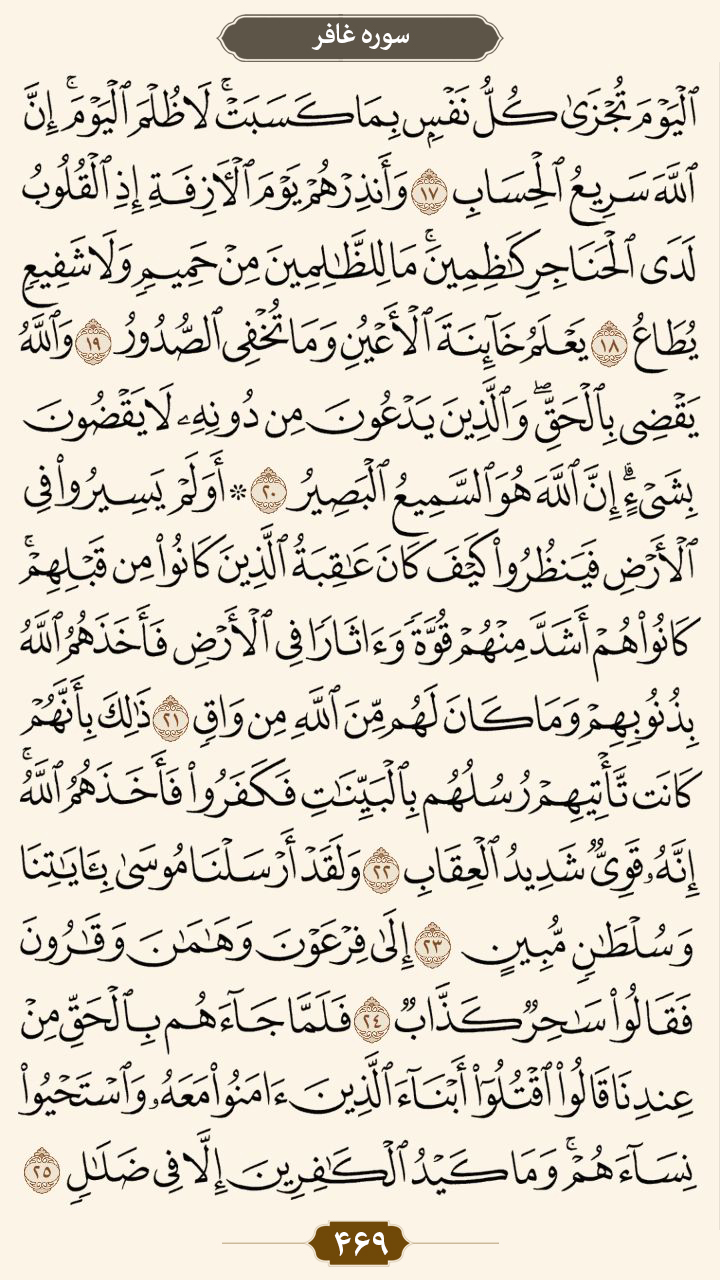 سوره غافر
ٱلْيَوْمَ تُجْزَىٰ كُلُّ نَفْسٍۭ بِمَا كَسَبَتْ ۚ لَا ظُلْمَ ٱلْيَوْمَ ۚ إِنَّ
ٱللَّهَ سَرِيعُ ٱلْحِسَابِ ١٧ وَأَنذِرْهُمْ يَوْمَ ٱلْـَٔازِفَةِ إِذِ ٱلْقُلُوبُ
لَدَى ٱلْحَنَاجِرِ كَـٰظِمِينَ ۚ مَا لِلظَّـٰلِمِينَ مِنْ حَمِيمٍ وَلَا شَفِيعٍ
يُطَاعُ ١٨ يَعْلَمُ خَآئِنَةَ ٱلْأَعْيُنِ وَمَا تُخْفِى ٱلصُّدُورُ ١٩ وَٱللَّهُ
يَقْضِى بِٱلْحَقِّ ۖ وَٱلَّذِينَ يَدْعُونَ مِن دُونِهِۦ لَا يَقْضُونَ
بِشَىْءٍ ۗ إِنَّ ٱللَّهَ هُوَ ٱلسَّمِيعُ ٱلْبَصِيرُ ٢٠ * أَوَلَمْ يَسِيرُوا۟ فِى
ٱلْأَرْضِ فَيَنظُرُوا۟ كَيْفَ كَانَ عَـٰقِبَةُ ٱلَّذِينَ كَانُوا۟ مِن قَبْلِهِمْ ۚ
كَانُوا۟ هُمْ أَشَدَّ مِنْهُمْ قُوَّةً وَءَاثَارًا فِى ٱلْأَرْضِ فَأَخَذَهُمُ ٱللَّهُ
بِذُنُوبِهِمْ وَمَا كَانَ لَهُم مِّنَ ٱللَّهِ مِن وَاقٍ ٢١ ذَٰلِكَ بِأَنَّهُمْ
كَانَت تَّأْتِيهِمْ رُسُلُهُم بِٱلْبَيِّنَـٰتِ فَكَفَرُوا۟ فَأَخَذَهُمُ ٱللَّهُ ۚ
إِنَّهُۥ قَوِىٌّ شَدِيدُ ٱلْعِقَابِ ٢٢ وَلَقَدْ أَرْسَلْنَا مُوسَىٰ بِـَٔايَـٰتِنَا
وَسُلْطَـٰنٍ مُّبِينٍ ٢٣ إِلَىٰ فِرْعَوْنَ وَهَـٰمَـٰنَ وَقَـٰرُونَ
فَقَالُوا۟ سَـٰحِرٌ كَذَّابٌ ٢٤ فَلَمَّا جَآءَهُم بِٱلْحَقِّ مِنْ
عِندِنَا قَالُوا۟ ٱقْتُلُوٓا۟ أَبْنَآءَ ٱلَّذِينَ ءَامَنُوا۟ مَعَهُۥ وَٱسْتَحْيُوا۟
نِسَآءَهُمْ ۚ وَمَا كَيْدُ ٱلْكَـٰفِرِينَ إِلَّا فِى ضَلَـٰلٍ ٢٥
۴۶۹